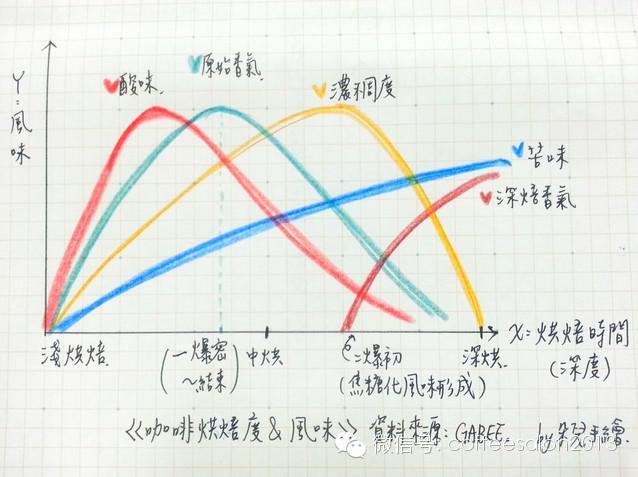 酸味
原始香氣
濃稠度
Y=風味
苦味
深焙香氣
X=烘焙時間
(深度)
淺烘焙
(一爆密
~結束)
中烘
二爆初
(焦糖化風味形成)
深烘
<<咖啡烘焙度&風味>> 資料來源:GABEE. by 手繪
微信号: